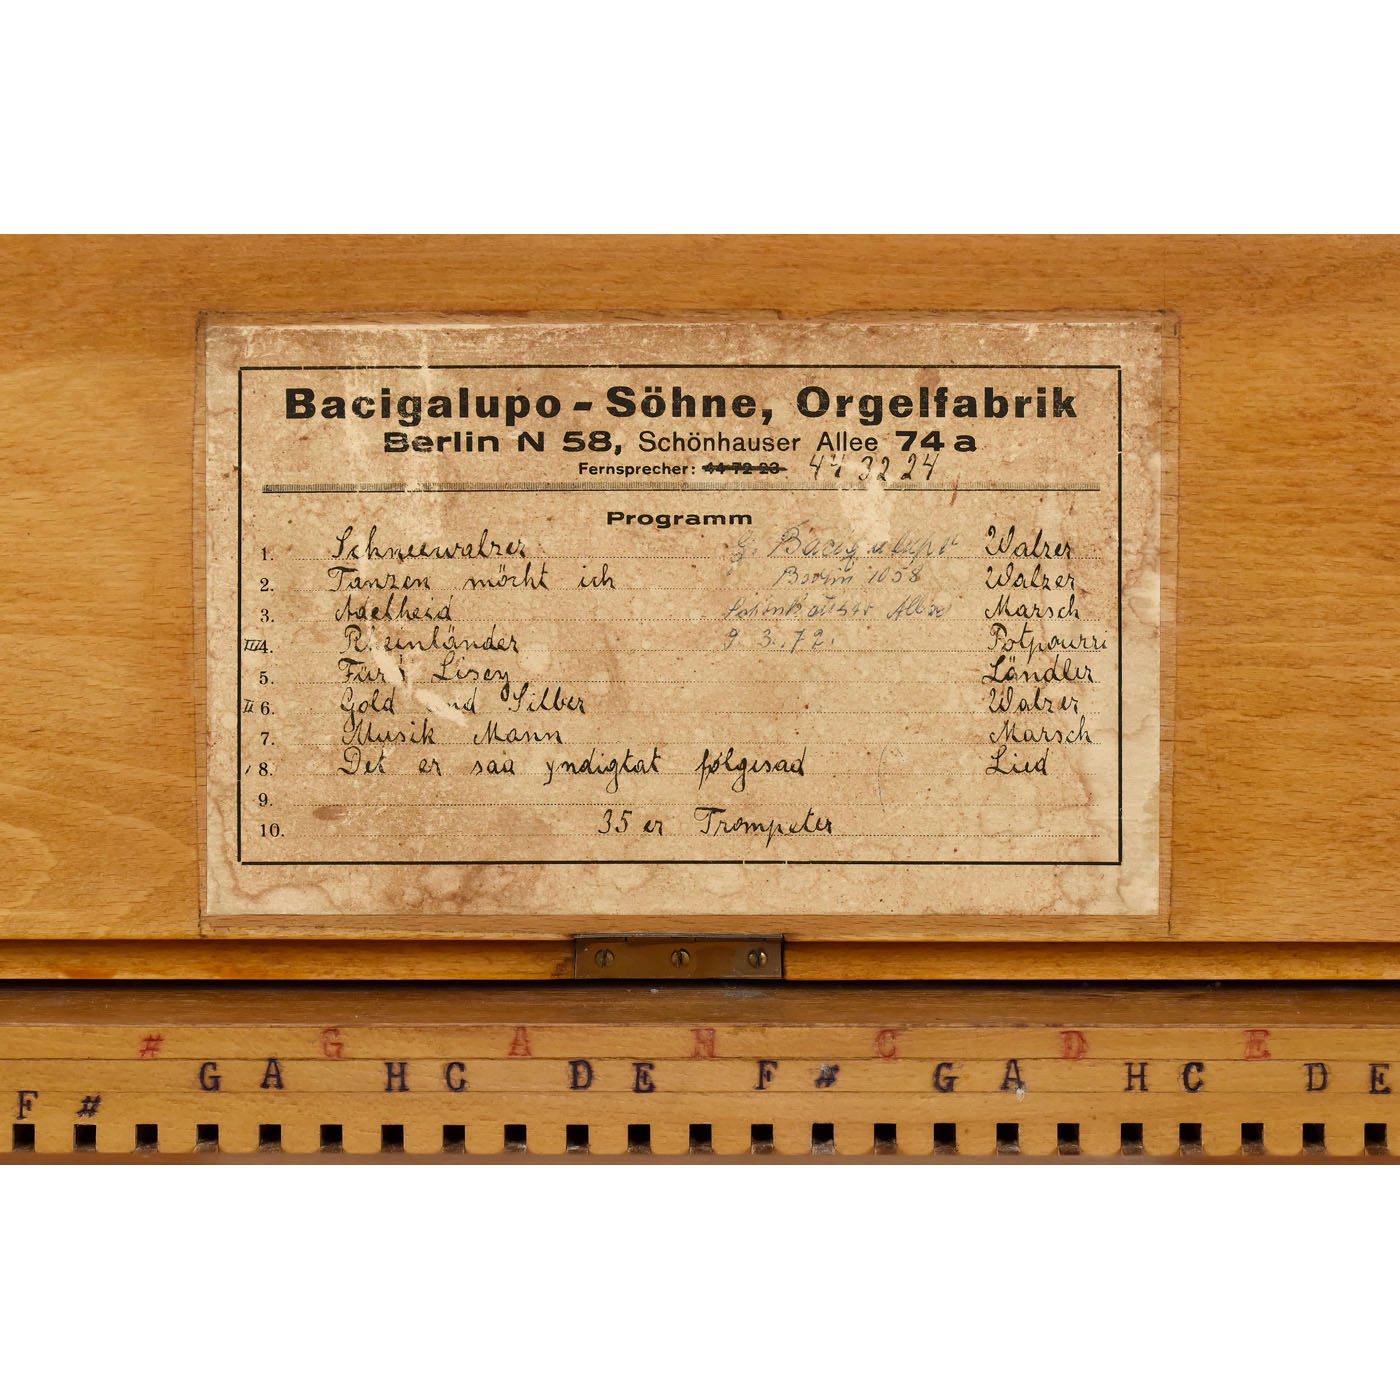 Bacigalupo - Söhne, Orgelfabrik
Berlin N 58, Schönhauser Allee 74 a
Fernsprecher: 44 72 23 44 32 24
Programm
1. Schneewalzer G. Bacigalupo Walzer
2. Tanzen möcht ich Berlin 1058 Walzer
3. Adelheid Schönhauser Allee Marsch
III 4. Rheinländer 9. 3. 72. Potpourri
5. Für Lisey Ländler
II 6. Gold und Silber Walzer
7. Musik Mann Marsch
8. Det er saa yndigtat følgesad Lied
9.
10. 35 er Trompeter
# G A H C D E
G A H C D E F # G A H C D E
F #